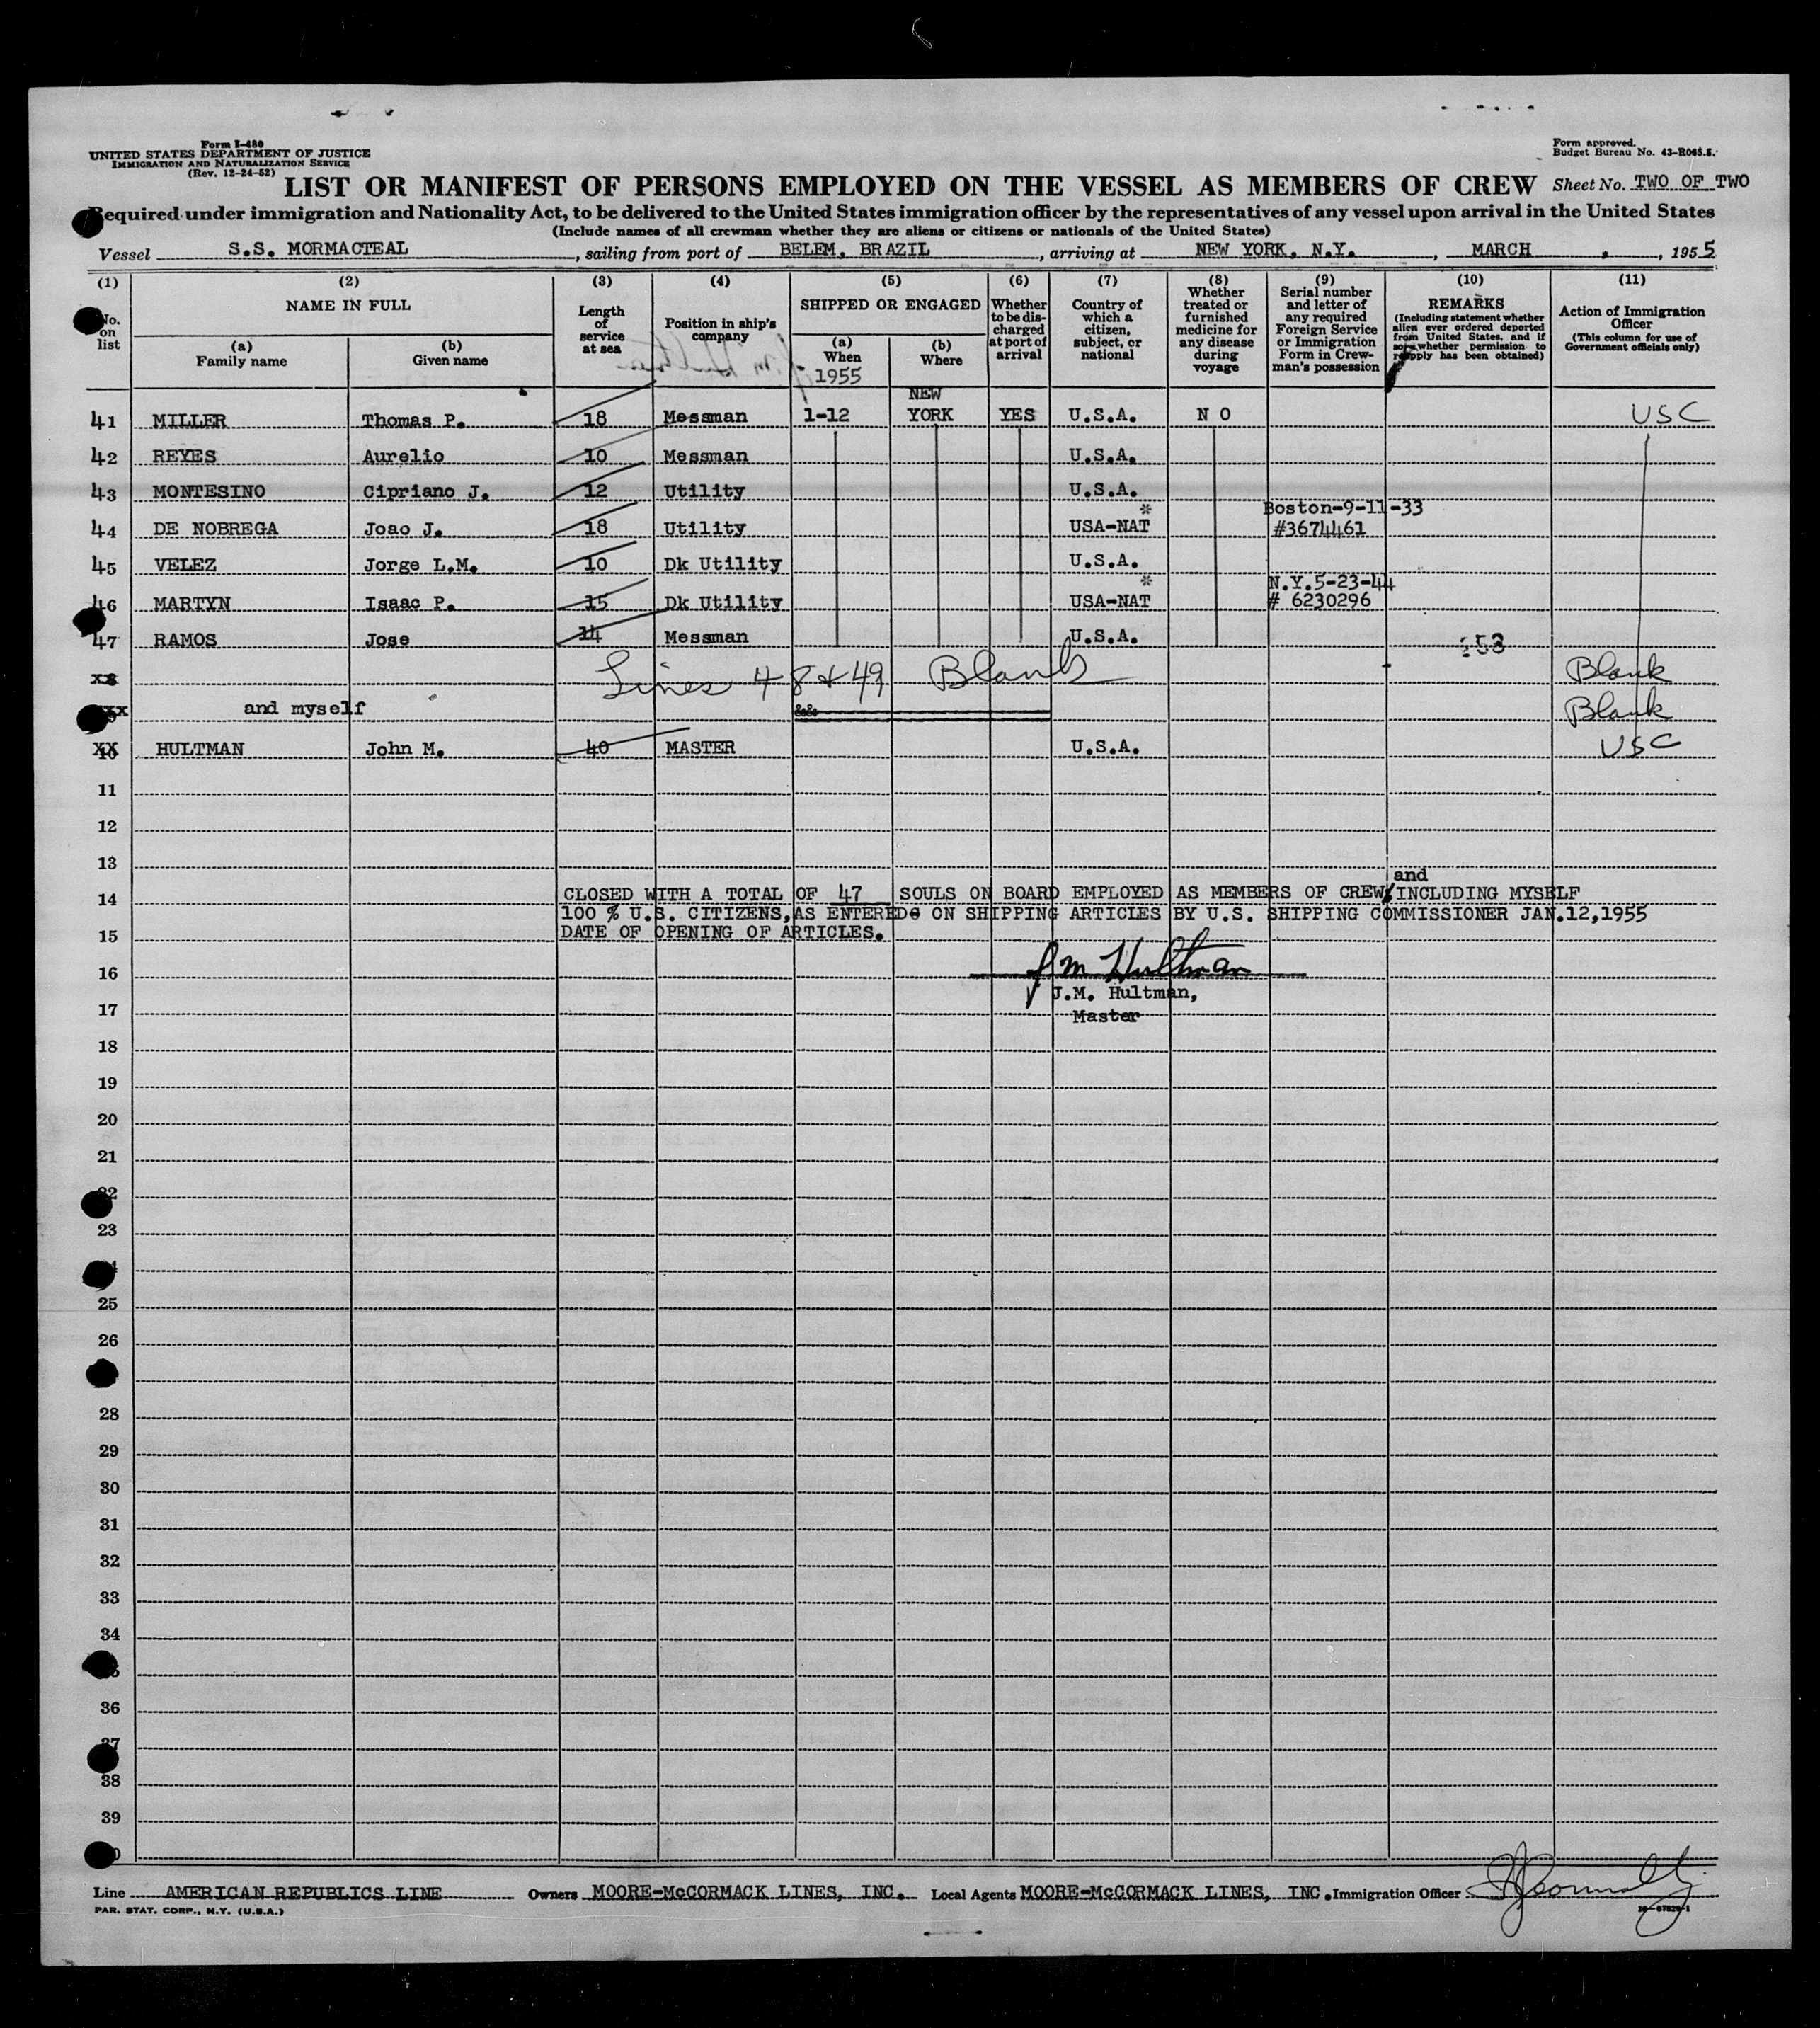 Form I-480
UNITED STATES DEPARTMENT OF JUSTICE
IMMIGRATION AND NATURALIZATION SERVICE
(Rev. 12-24-52)
Form approved.
Budget Bureau No. 43-R065.5.
LIST OR MANIFEST OF PERSONS EMPLOYED ON THE VESSEL AS MEMBERS OF CREW
Sheet No. TWO OF TWO
Required under immigration and Nationality Act, to be delivered to the United States immigration officer by the representatives of any vessel upon arrival in the United States
(Include names of all crewman whether they are aliens or citizens or nationals of the United States)
Vessel S.S. MORMACTEAL, sailing from port of BELEM, BRAZIL, arriving at NEW YORK, N.Y., MARCH , 1955
(1) No. on list
(2) NAME IN FULL
(a) Family name
(b) Given name
(3) Length of service at sea
(4) Position in ship's company
(5) SHIPPED OR ENGAGED
(a) When 1955
(b) Where
(6) Whether to be discharged at port of arrival
(7) Country of which a citizen, subject, or national
(8) Whether treated or furnished medicine for any disease during voyage
(9) Serial number and letter of any required Foreign Service or Immigration Form in Crewman's possession
(10) REMARKS (Including statement whether alien ever ordered deported from United States, and if so, whether permission to reapply has been obtained)
(11) Action of Immigration Officer (This column for use of Government officials only)
41 MILLER Thomas P. 18 Messman 1-12 NEW YORK YES U.S.A. N O USC
42 REYES Aurelio 10 Messman U.S.A.
43 MONTESINO Cipriano J. 12 Utility U.S.A.
44 DE NOBREGA Joao J. 18 Utility * USA-NAT Boston-9-11-33 #3674461
45 VELEZ Jorge L.M. 10 Dk Utility U.S.A.
46 MARTYN Isaac P. 15 Dk Utility * USA-NAT N.Y.5-23-44 # 6230296
47 RAMOS Jose 14 Messman U.S.A.
Lines 48 & 49 Blank Blank
and myself Blank
XX HULTMAN John M. 40 MASTER U.S.A. USC
11
12
13
and
14 CLOSED WITH A TOTAL OF 47 SOULS ON BOARD EMPLOYED AS MEMBERS OF CREW INCLUDING MYSELF
100 % U.S. CITIZENS,AS ENTERED ON SHIPPING ARTICLES BY U.S. SHIPPING COMMISSIONER JAN.12,1955
15 DATE OF OPENING OF ARTICLES.
16 J M Hultman
J.M. Hultman,
17 Master
18
19
20
21
23
25
26
28
29
30
31
32
33
34
36
37
38
39
Line AMERICAN REPUBLICS LINE Owners MOORE-McCORMACK LINES, INC. Local Agents MOORE-McCORMACK LINES, INC. Immigration Officer
PAR. STAT. CORP., N.Y. (U.S.A.)